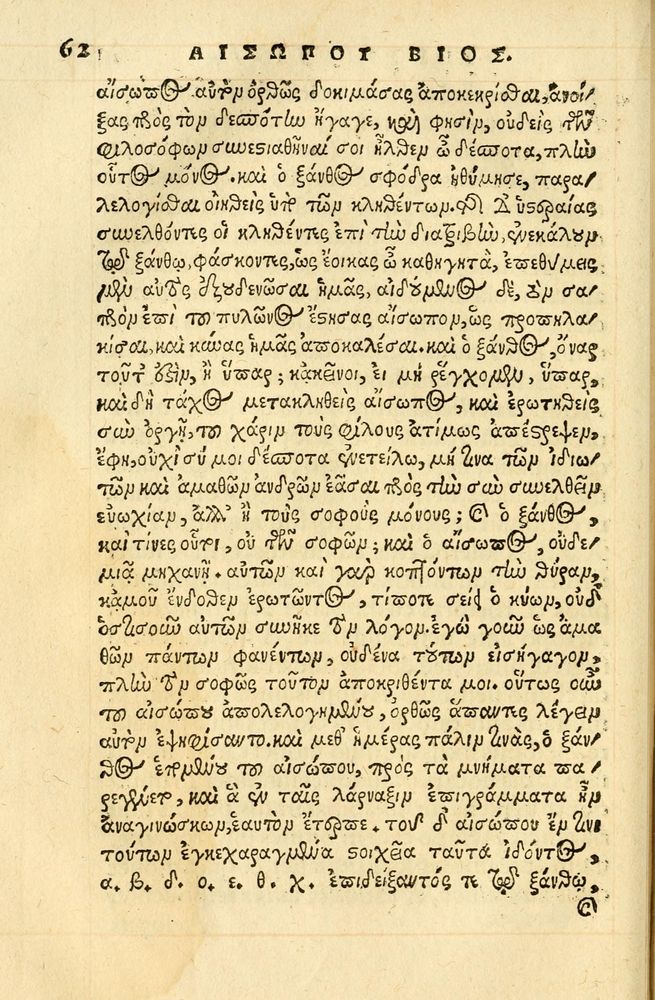 62 ΑΙΣΩΠΟΥ ΒΙΟΣ.
αἴσωπος αὐτὸν ὀρθῶς δοκιμάσας ἀποκεκρίσθαι, ἀνοί/
ξας πρὸς τὸν δεσπότην ἤγαγε, καὶ φησὶν, οὐδεὶς τῶν
φιλοσόφων συνεστιαθῆναί σοι ἦλθεν ὦ δέσποτα, πλὴν
οὗτος μόνος. καὶ ὁ ξάνθος σφόδρα ἠθύμησε, παρα/
λελογίσθαι οἰηθεὶς ὑπὸ τῶν κληθέντων. τῇ δ' ὑστεραίας
συνελθόντες οἱ κληθέντες ἐπὶ τὴν διατριβὴν, ἐνεκάλουν
τῷ ξάνθῳ, φάσκοντες, ὡς ἔοικας ὦ καθηγητὰ, ἐπεθύμεις
μὲν αὐτὸς ἐξουδενῶσαι ἡμᾶς, αἰδούμενος δὲ, τὸν σα/
πρὸν ἐπὶ τοῦ πυλῶνος ἔστησας αἴσωπον, ὡς προπηλα/
κίσαι, καὶ κύνας ἡμᾶς ἀποκαλέσαι. καὶ ὁ ξάνθος, ὄναρ
τοῦτ' ἐστὶν, ἢ ὕπαρ; κἀκεῖνοι, εἰ μὴ ῥέγχομεν, ὕπαρ,
καὶ δὴ τάχος μετακληθεὶς αἴσωπος, καὶ ἐρωτηθεὶς
σὺν ὀργῇ, τοῦ χάριν τοὺς φίλους ἀτίμως ἀπέστρεψεν,
ἔφη, οὐχὶ σύ μοι δέσποτα ἐνετείλω, μή τινα τῶν ἰδιω/
τῶν καὶ ἀμαθῶν ἀνδρῶν ἐᾶσαι πρὸς τὴν σὴν συνελθεῖν
εὐωχίαν, ἀλλ' ἢ τοὺς σοφοὺς μόνους; καὶ ὁ ξάνθος,
καὶ τίνες οὗτοι, οὐ τῶν σοφῶν; καὶ ὁ αἴσωπος, οὐδε/
μιᾷ μηχανῇ. αὐτῶν καὶ γὰρ κοπτόντων τὴν θύραν,
κἀμοῦ ἔνδοθεν ἐρωτῶντος, τί ποτε σείει ὁ κύων, οὐδ'
ὁστισοῦν αὐτῶν συνῆκε τὸν λόγον. ἐγὼ γοῦν ὡς ἀμα
θῶν πάντων φανέντων, οὐδένα τούτων εἰσήγαγον,
πλὴν τὸν σοφῶς τοῦτον ἀποκριθέντα μοι. οὕτως οὖν
τοῦ αἰσώπου ἀπολελογημένου, ὀρθῶς ἅπαντες λέγειν
αὐτὸν ἐψηφίσαντο. καὶ μεθ' ἡμέρας πάλιν τινὰς, ὁ ξάν/
θος ἑπομένου τοῦ αἰσώπου, πρὸς τὰ μνήματα πα/
ρεγένετο, καὶ ἃ ἐν ταῖς λάρναξιν ἐπιγράμματα ἦν
ἀναγινώσκων, ἑαυτὸν ἔτερπε. τοῦ δ' αἰσώπου ἔν τινι
τούτων ἐγκεχαραγμένα στοιχεῖα ταῦτα ἰδόντος,
α. β. δ. ο. ε. θ. χ. ἐπιδείξαντός τε τῷ ξάνθῳ,
καὶ